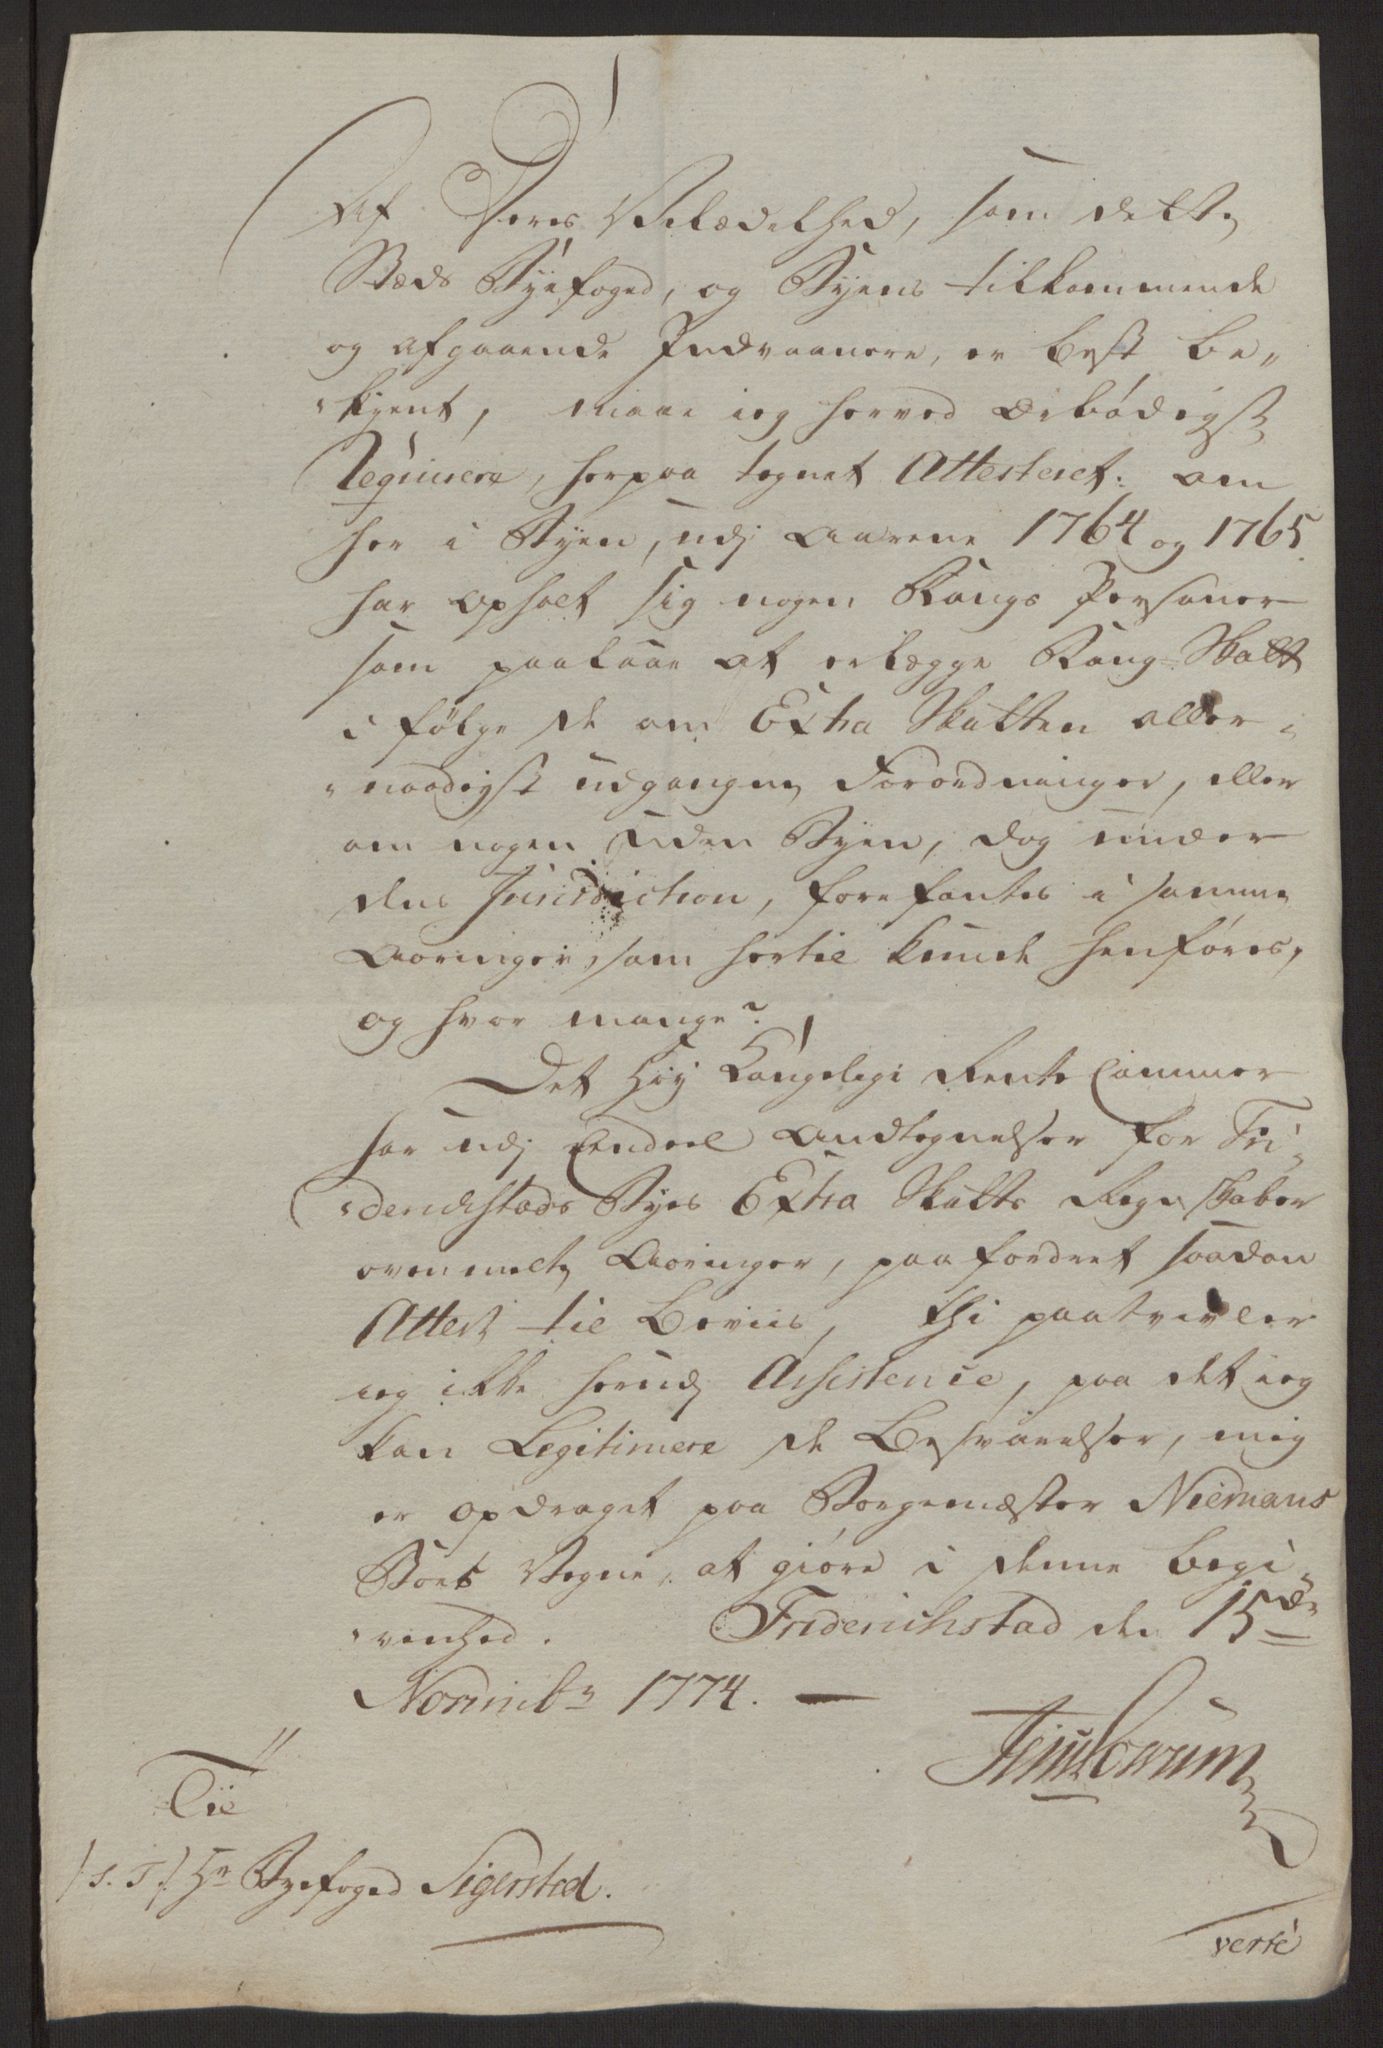 Af Deres Velædelhed, som dette
Stæds Byefoged, og Byens tilkommende
og afgaaende Indvaanere, er best be-
kient, maae ieg herved ærbødigst
Reqvirere, herpaa tegnet Attesteret: om
her i Byen, udj Aarene 1764 og 1765
har opholt sig nogen Rangs Personer
som paalaae at erlægge Rang-Skatt
i følge de om Extra Skatten aller-
naadigst udgangne Forordninger, eller
om nogen uden Byen, dog under
dens Jurisdiction, forefantes i samme
Aaringer, som hertil kunde henføres,
og hvor mange?
Det Høy Kongelige Rente Cammer
har udj Endeel Andtegnelser for Fri-
derichstads Byes Extra Skatts Regnskaber
ovenmelte Aaringer, paafordret saadan
Attest til Beviis, thi paatvivler
ieg ikke herudj Assistence, paa det ieg
kan Legitimere de Besvarelser, mig
er opdraget paa Borgemester Niemans
Boes Vegne, at giøre i denne begi-
venhed. Friderichstad den 15de
Novembr 1774. —
Til
/S. T./ Hr Byefoged Sigersted.
verte